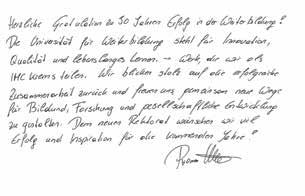 Herzliche Gratulation zu 30 Jahren Erfolg in der Weiterbildung!
Die Universität für Weiterbildung steht für Innovation,
Qualität und lebenslanges Lernen – Werte, die wir als
IMC Krems teilen. Wir blicken stolz auf die erfolgreiche
Zusammenarbeit zurück und freuen uns, gemeinsam neue Wege
für Bildung, Forschung und gesellschaftliche Entwicklung
zu gestalten. Dem neuen Rektorat wünschen wir viel
Erfolg und Inspiration für die kommenden Jahre!